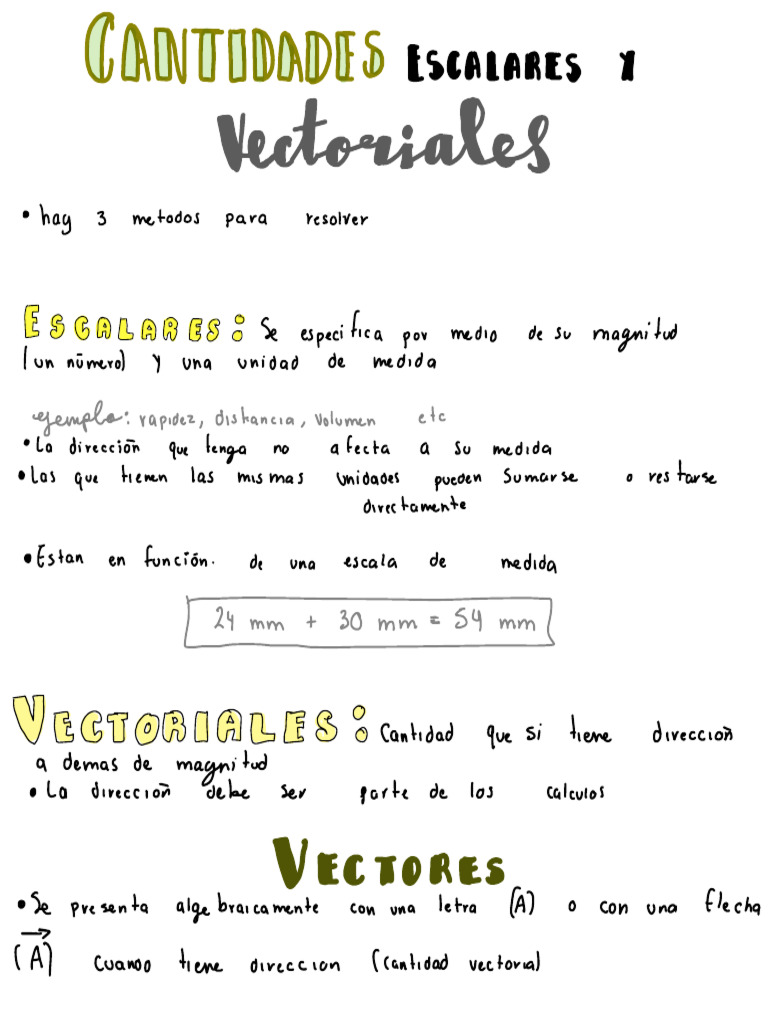 CANTIDADES ESCALARES Y
Vectoriales
• hay 3 metodos para resolver
ESCALARES: Se especifica por medio de su magnitud
(un número) y una unidad de medida
ejemplo: rapidez, distancia, volumen etc
• La dirección que tenga no afecta a su medida
• Las que tienen las mismas unidades pueden sumarse o restarse
directamente
• Estan en función. de una escala de medida
24 mm + 30 mm = 54 mm
VECTORIALES: Cantidad que si tiene dirección
a demas de magnitud
• La dirección debe ser parte de los calculos
VECTORES
• Se presenta algebraicamente con una letra (A) o con una flecha
(A⃗) cuando tiene direccion (cantidad vectorial)